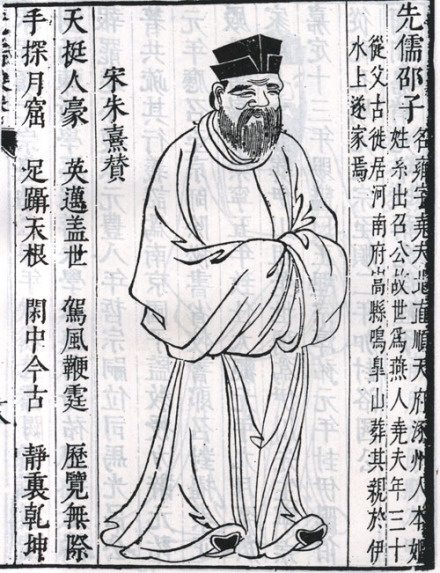 先儒邵子
名雍字堯夫北直順天府涿州人本姬
姓系出召公故世爲燕人堯夫年三十
從父古徙居河南府嵩縣鳴臯山葬其親於伊
水上遂家焉
宋朱熹贊
天挺人豪 英邁盖世 駕風鞭霆 歷覽無際
手探月窟 足躡天根 閑中今古 靜裏乾坤